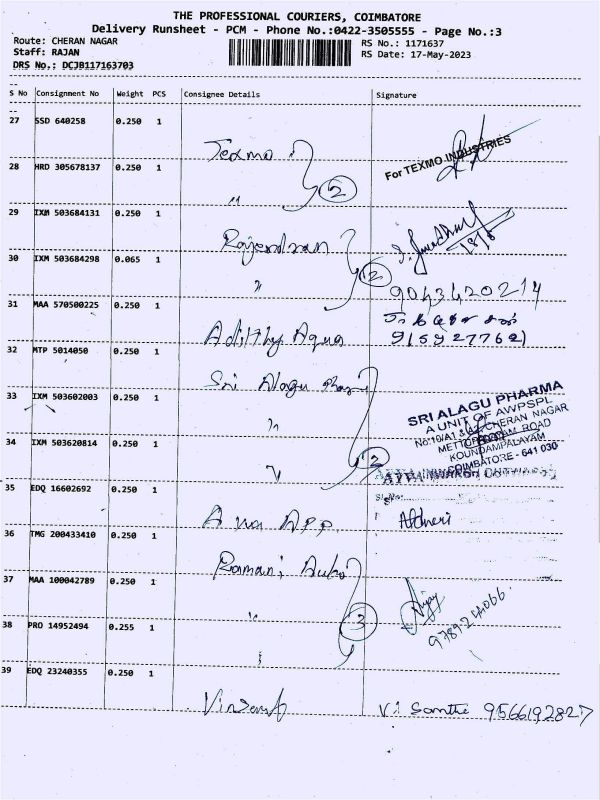 THE PROFESSIONAL COURIERS, COIMBATORE
Delivery Runsheet - PCM - Phone No.:0422-3505555 - Page No.:3
Route: CHERAN NAGAR
RS No.: 1171637
Staff: RAJAN
RS Date: 17-May-2023
DRS No.: DCJB117163703
S No Consignment No Weight PCS Consignee Details Signature
27 SSD 640258 0.250 1
Texmo
For TEXMO INDUSTRIES
28 HRD 305678137 0.250 1
" 2
29 IXM 503684131 0.250 1
Rajendran
30 IXM 503684298 0.065 1
" 2
9043420214
31 MAA 570500225 0.250 1
Adithy Aqua
9159277621
32 MTP 5014050 0.250 1
Sri Alagu
33 IXM 503602003 0.250 1
"
SRI ALAGU PHARMA
A UNIT OF AWPSPL
CHERAN NAGAR
ROAD
KOUNDAMPALAYAM
COIMBATORE - 641 030
34 IXM 503620814 0.250 1
" 2
35 EDQ 16602692 0.250 1
36 TMG 200433410 0.250 1
Ramani Auto
37 MAA 100042789 0.250 1
" 3
Vijay
38 PRO 14952494 0.255 1
39 EDQ 23240355 0.250 1
9566192827